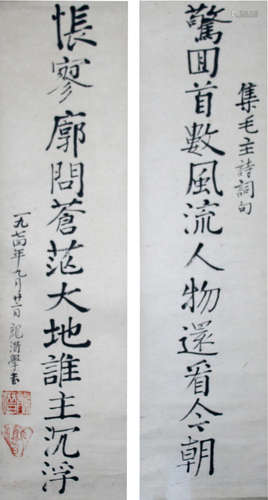 集毛主詩詞句
驚回首數風流人物還看今朝
悵寥廓問蒼茫大地誰主沉浮
一九七四年九月廿二日